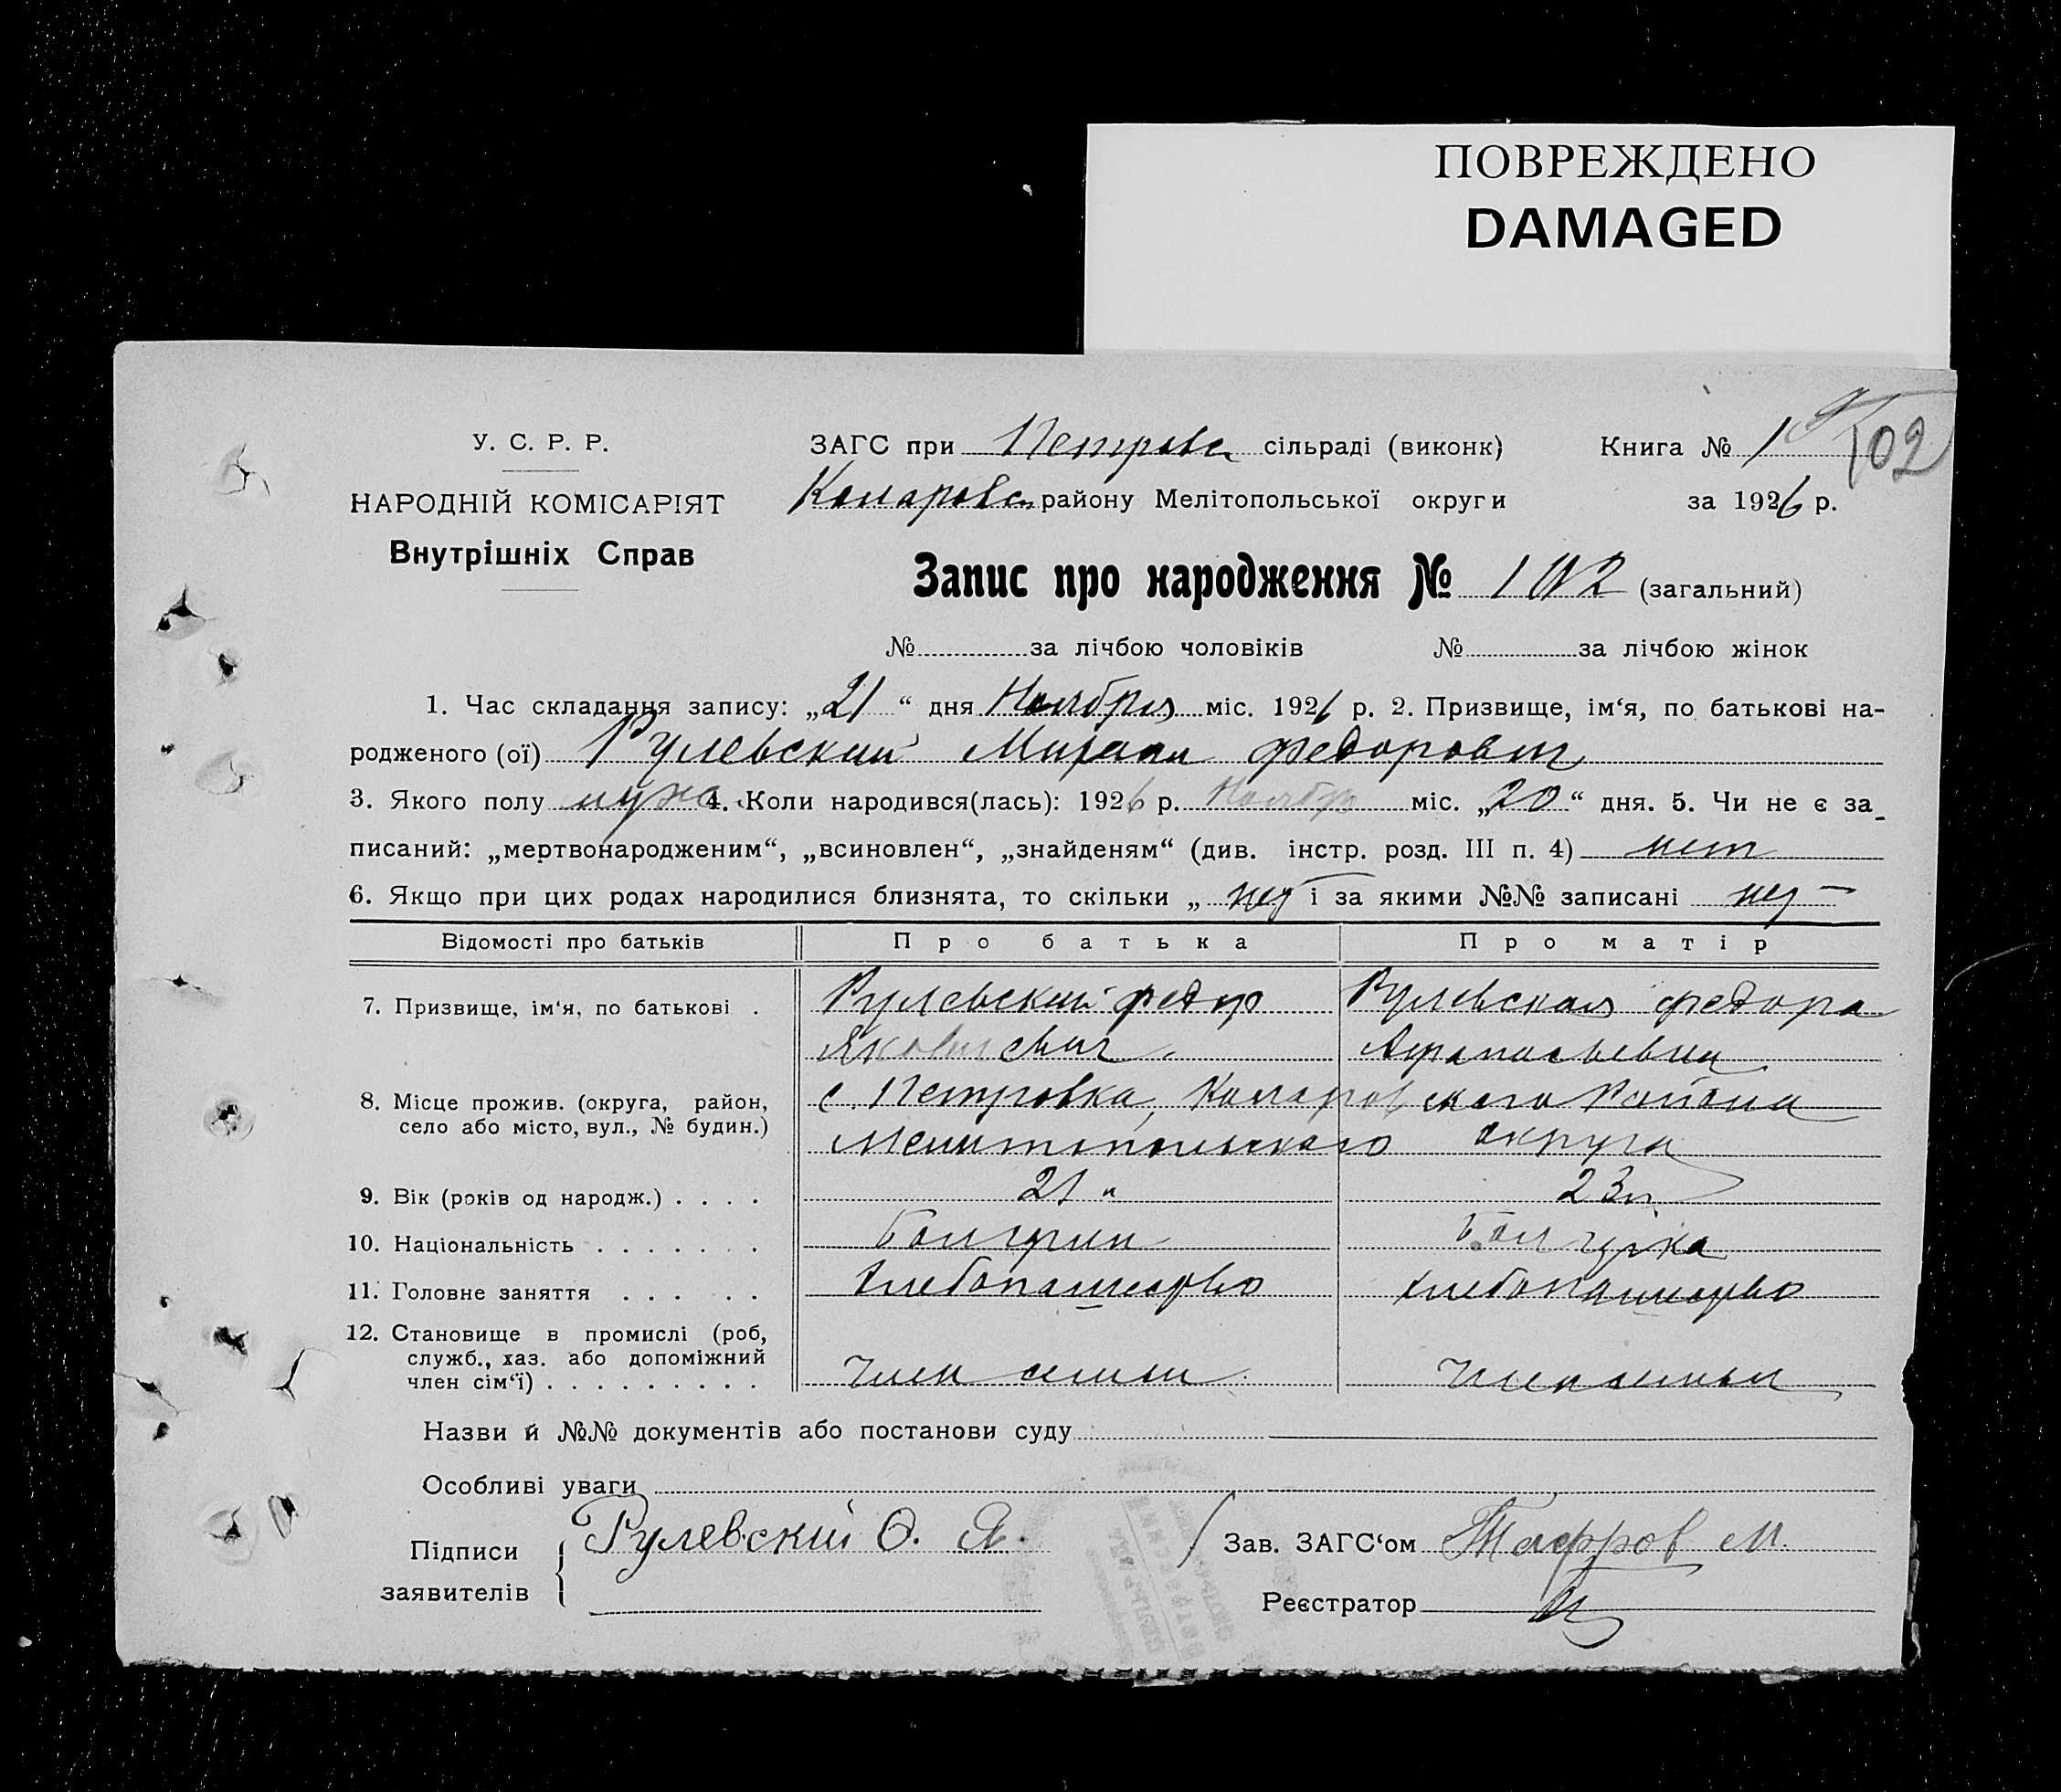 ПОВРЕЖДЕНО
DAMAGED
У. С. Р. Р.
НАРОДНІЙ КОМІСАРІЯТ
Внутрішніх Справ
ЗАГС при Петровс сільраді (виконк)
Книга № 1
102
Комаровс району Мелітопольської округи за 1926 р.
Запис про народження № 102 (загальний)
№ за лічбою чоловіків № за лічбою жінок
1. Час складання запису: „21“ дня Ноября міс. 1926 р. 2. Призвище, ім‘я, по батькові на-
родженого (ої) Рулевский Михаил Федорович
3. Якого полу муж 4. Коли народився(лась): 1926 р. Ноябр міс. „20“ дня. 5. Чи не є за_
писаний: „мертвонародженим“, „всиновлен“, „знайденям“ (див. інстр. розд. III п. 4) нет
6. Якщо при цих родах народилися близнята, то скільки „ нет і за якими №№ записані нет
Відомості про батьків Про батька Про матір
7. Призвище, ім‘я, по батькові . Рулевский Федор Рулевская Федора
Яковлевич Афанасьевна
8. Місце прожив. (округа, район, село або місто, вул., № будин.) с. Петровка, Комаровского Района
Мелитопольского округа
9. Вік (років од народж.) . . . . 21 " 23
10. Національність . . . . . . . Болгарин Болгарка
11. Головне заняття . . . . . Хлебопашество Хлебопашество
12. Становище в промислі (роб,
служб., хаз. або допоміжний
член сім‘ї) . . . . . . . . . Член семьи Член семьи
Назви й №№ документів або постанови суду
Особливі уваги
Підписи заявителів Рулевский Ф. Я.
Зав. ЗАГС‘ом М.
Реєстратор